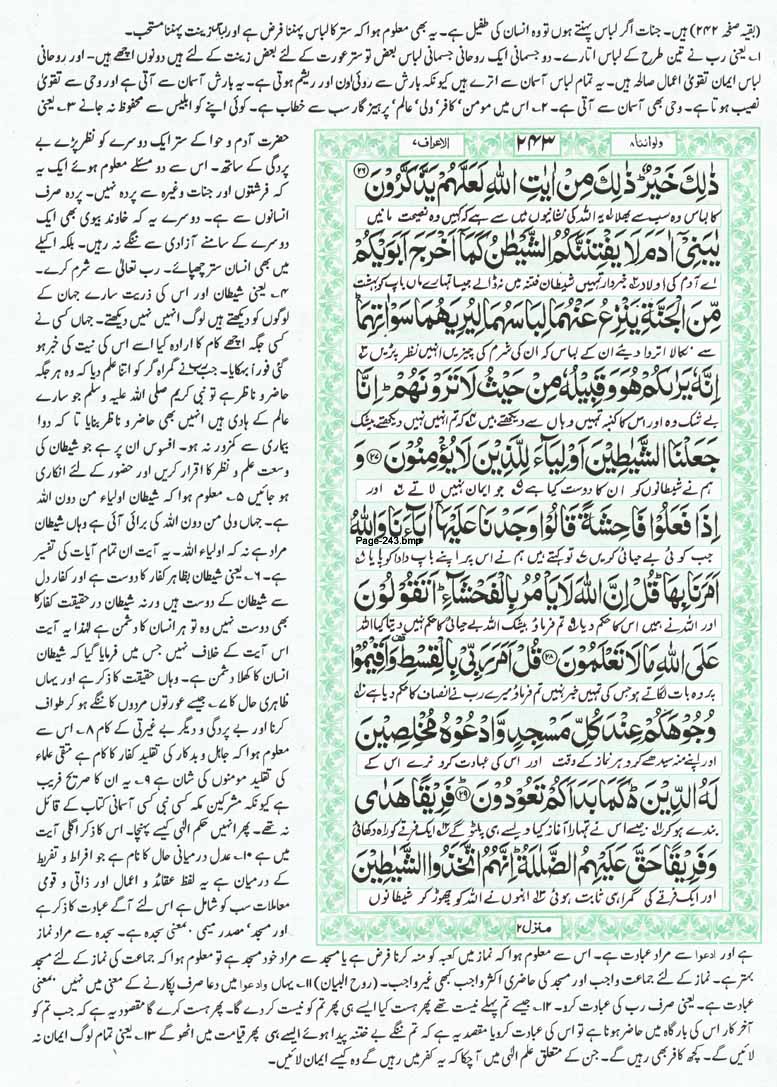 (بقیہ صفحہ ۲۴۲) ہیں۔ جنات اگر لباس پہنتے ہوں تو وہ انسان کی طفیل ہے۔ یہ بھی معلوم ہوا کہ ستر کا لباس پہننا فرض ہے اور لباس زینت پہننا مستحب۔
۱۔ یعنی رب نے تین طرح کے لباس اتارے۔ دو جسمانی ایک روحانی جسمانی لباس بعض تو ستر عورت کے لئے بعض زینت کے لئے ہیں دونوں اچھے ہیں۔ اور روحانی
لباس ایمان تقویٰ اعمال صالحہ ہیں۔ یہ تمام لباس آسمان سے اترے ہیں کیونکہ بارش سے روئی اون اور ریشم ہوتی ہے اور یہ بارش آسمان سے آتی ہے اور وحی سے تقویٰ
نصیب ہوتا ہے۔ وحی بھی آسمان سے آتی ہے۔ ۲۔ اس میں مومن، کافر، ولی، عالم، پرہیز گار سب سے خطاب ہے۔ کوئی اپنے کو ابلیس سے محفوظ نہ جانے ۳۔ یعنی
ولواننا ۸
۲۴۳
الاعراف ۷
ذٰلِكَ خَيْرٌ ذٰلِكَ مِنْ اٰيٰتِ اللّٰهِ لَعَلَّهُمْ يَذَّكَّرُوْنَ ۲۶
کا لباس وہ سب سے بھلا یہ اللہ کی نشانیوں میں سے ہے کہ کہیں وہ نصیحت مانیں
يٰبَنِيْٓ اٰدَمَ لَا يَفْتِنَنَّكُمُ الشَّيْطٰنُ كَمَآ اَخْرَجَ اَبَوَيْكُمْ
اے آدم کی اولاد خبردار تمہیں شیطان فتنہ میں نہ ڈالے جیسا تمہارے ماں باپ کو بہشت
مِّنَ الْجَنَّةِ يَنْزِعُ عَنْهُمَا لِبَاسَهُمَا لِيُرِيَهُمَا سَوْاٰتِهِمَا
سے نکالا اتروا دیئے ان کے لباس کہ ان کی شرم کی چیزیں انہیں نظر پڑیں
اِنَّهٗ يَرٰىكُمْ هُوَ وَقَبِيْلُهٗ مِنْ حَيْثُ لَا تَرَوْنَهُمْ اِنَّا
بے شک وہ اور اس کا کنبہ تمہیں وہاں سے دیکھتے ہیں کہ تم انہیں نہیں دیکھتے بیشک
جَعَلْنَا الشَّيٰطِيْنَ اَوْلِيَآءَ لِلَّذِيْنَ لَا يُؤْمِنُوْنَ ۲۷ وَ
ہم نے شیطانوں کو ان کا دوست کیا ہے جو ایمان نہیں لاتے اور
اِذَا فَعَلُوْا فَاحِشَةً قَالُوْا وَجَدْنَا عَلَيْهَآ اٰبَآءَنَا وَاللّٰهُ
Page-243.bmp
جب کوئی بے حیائی کریں تو کہتے ہیں ہم نے اس پر اپنے باپ دادا کو پایا
اَمَرَنَا بِهَا قُلْ اِنَّ اللّٰهَ لَا يَاْمُرُ بِالْفَحْشَآءِ اَتَقُوْلُوْنَ
اور اللہ نے ہمیں اس کا حکم دیا تم فرماؤ بیشک اللہ بے حیائی کا حکم نہیں دیتا کیا اللہ
عَلَى اللّٰهِ مَا لَا تَعْلَمُوْنَ ۲۸ قُلْ اَمَرَ رَبِّيْ بِالْقِسْطِ وَاَقِيْمُوْا
پر وہ بات لگاتے ہو جس کی تمہیں خبر نہیں تم فرماؤ میرے رب نے انصاف کا حکم دیا ہے
وُجُوْهَكُمْ عِنْدَ كُلِّ مَسْجِدٍ وَّادْعُوْهُ مُخْلِصِيْنَ
اور اپنے منہ سیدھے کرو ہر نماز کے وقت اور اس کی عبادت کرو نرے اس کے
لَهُ الدِّيْنَ كَمَا بَدَاَكُمْ تَعُوْدُوْنَ ۲۹ فَرِيْقًا هَدٰى
بندے ہو کر جیسے اس نے تمہارا آغاز کیا ویسے ہی پلٹو گے ایک فرقے کو راہ دکھائی
وَفَرِيْقًا حَقَّ عَلَيْهِمُ الضَّلٰلَةُ اِنَّهُمُ اتَّخَذُوا الشَّيٰطِيْنَ
اور ایک فرقے کی گمراہی ثابت ہوئی انہوں نے اللہ کو چھوڑ کر شیطانوں
منزل ۲
حضرت آدم و حوا کے ستر ایک دوسرے کو نظر پڑے بے
پردگی کے ساتھ۔ اس سے دو مسئلے معلوم ہوئے ایک یہ
کہ فرشتوں اور جنات وغیرہ سے پردہ نہیں۔ پردہ صرف
انسانوں سے ہے۔ دوسرے یہ کہ خاوند بیوی بھی ایک
دوسرے کے سامنے آزادی سے ننگے نہ رہیں۔ بلکہ اکیلے
میں بھی انسان ستر چھپائے۔ رب تعالیٰ سے شرم کرے۔
۴۔ یعنی شیطان اور اس کی ذریت سارے جہان کے
لوگوں کو دیکھتے ہیں لوگ انہیں نہیں دیکھتے۔ جہاں کسی نے
کسی جگہ اچھے کام کا ارادہ کیا اسے اس کی نیت کی خبر ہو
گئی فوراً بہکایا۔ جب گمراہ گر کو اتنا علم دیا کہ وہ ہر جگہ
حاضر و ناظر ہے تو نبی کریم صلی اللہ علیہ وسلم جو سارے
عالم کے ہادی ہیں انہیں بھی حاضر و ناظر بنایا تا کہ دوا
بیماری سے کمزور نہ ہو۔ افسوس ان پر ہے جو شیطان کی
وسعت علم و نظر کا اقرار کریں اور حضور کے لئے انکاری
ہو جائیں ۵۔ معلوم ہوا کہ شیطان اولیاء من دون اللہ
ہے۔ جہاں ولی من دون اللہ کی برائی آئی ہے وہاں شیطان
مراد ہے نہ کہ اولیاء اللہ۔ یہ آیت ان تمام آیات کی تفسیر
ہے۔ ۶۔ یعنی شیطان بظاہر کفار کا دوست ہے اور کفار دل
سے شیطان کے دوست ہیں ورنہ شیطان در حقیقت کفار کا
بھی دوست نہیں وہ تو ہر انسان کا دشمن ہے لہٰذا یہ آیت
اس آیت کے خلاف نہیں جس میں فرمایا گیا کہ شیطان
انسان کا کھلا دشمن ہے۔ وہاں حقیقت کا ذکر ہے اور یہاں
ظاہری حال کا ۷۔ جیسے عورتوں مردوں کا ننگے ہو کر طواف
کرنا اور بے پردگی و دیگر بے غیرتی کے کام ۸۔ اس سے
معلوم ہوا کہ جاہل و بدکار کی تقلید کفار کا کام ہے متقی علماء
کی تقلید مومنوں کی شان ہے ۹۔ یہ ان کا صریح فریب
ہے کیونکہ مشرکین مکہ کسی نبی کسی آسمانی کتاب کے قائل
نہ تھے۔ پھر انہیں حکم الٰہی کیسے پہنچا۔ اس کا ذکر اگلی آیت
میں ہے ۱۰۔ عدل درمیانی حال کا نام ہے جو افراط و تفریط
کے درمیان ہے یہ لفظ عقائد و اعمال اور ذاتی و قومی
معاملات سب کو شامل ہے اس لئے آگے عبادت کا ذکر ہے
اور مسجد، مصدر میمی، بمعنی سجدہ ہے۔ سجدہ سے مراد نماز
ہے اور ادعوا سے مراد عبادت ہے۔ اس سے معلوم ہوا کہ نماز میں کعبہ کو منہ کرنا فرض ہے یا مسجد سے مراد خود مسجد ہے تو معلوم ہوا کہ جماعت کی نماز کے لئے مسجد
بہتر ہے۔ نماز کے لئے جماعت واجب اور مسجد کی حاضری اکثر واجب کبھی غیر واجب۔ (روح البیان) ۱۱۔ یہاں وادعوا میں دعا صرف پکارنے کے معنی میں نہیں، بمعنی
عبادت ہے۔ یعنی صرف رب کی عبادت کرو۔ ۱۲۔ جیسے تم پہلے نیست تھے پھر ہست کیا ایسے ہی پھر تم کو نیست کر دے گا۔ پھر ہست کرے گا مقصود یہ ہے کہ جب تم کو
آخر کار اس کی بارگاہ میں حاضر ہونا ہے تو اس کی عبادت کرو یا مقصد یہ ہے کہ تم ننگے بے ختنہ پیدا ہوئے ایسے ہی پھر قیامت میں اٹھو گے ۱۳۔ یعنی تمام لوگ ایمان نہ
لائیں گے۔ کچھ کافر بھی رہیں گے۔ جن کے متعلق علم الٰہی میں آ چکا کہ یہ کفر میں رہیں گے وہ کیسے ایمان لائیں۔